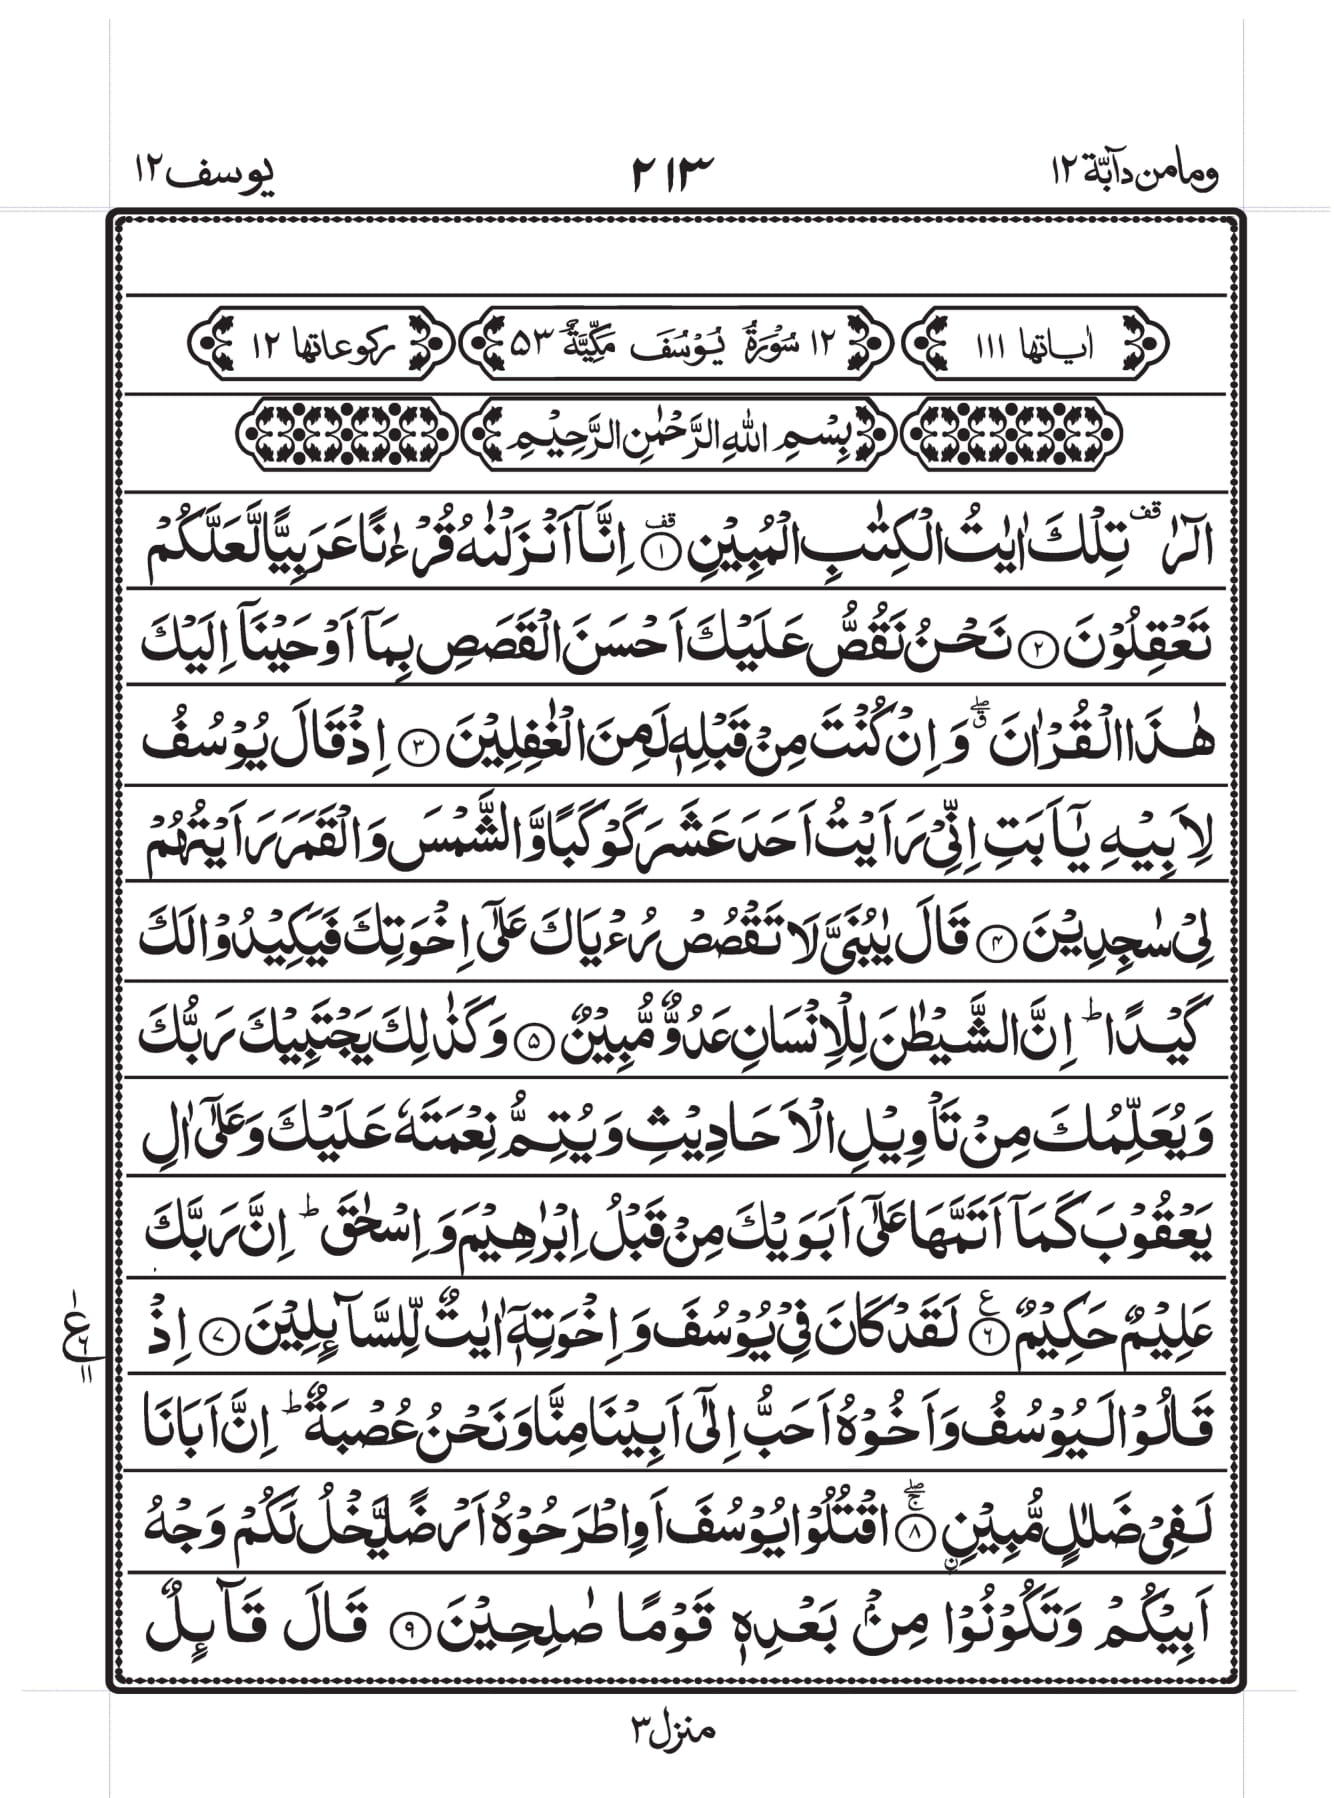 ومامن دآبّة ١٢ ٢١٣ يوسف ١٢
اٰياتها ١١١ ١٢ سُوْرَةُ يُوْسُفَ مَكِّيَّةٌ ٥٣ ركوعاتها ١٢
بِسْمِ اللهِ الرَّحْمٰنِ الرَّحِيْمِ
الٓرٰ ࣞقف تِلْكَ اٰيٰتُ الْكِتٰبِ الْمُبِيْنِ ۝١ قف اِنَّاۤ اَنْزَلْنٰهُ قُرْءٰنًا عَرَبِيًّا لَّعَلَّكُمْ
تَعْقِلُوْنَ ۝٢ نَحْنُ نَقُصُّ عَلَيْكَ اَحْسَنَ الْقَصَصِ بِمَاۤ اَوْحَيْنَاۤ اِلَيْكَ
هٰذَا الْقُرْاٰنَ ۖق وَ اِنْ كُنْتَ مِنْ قَبْلِهٖ لَمِنَ الْغٰفِلِيْنَ ۝٣ اِذْ قَالَ يُوْسُفُ
لِاَبِيْهِ يٰۤاَبَتِ اِنِّيْ رَاَيْتُ اَحَدَ عَشَرَ كَوْكَبًا وَّالشَّمْسَ وَالْقَمَرَ رَاَيْتُهُمْ
لِيْ سٰجِدِيْنَ ۝٤ قَالَ يٰبُنَيَّ لَا تَقْصُصْ رُءْيَاكَ عَلٰۤى اِخْوَتِكَ فَيَكِيْدُوْا لَكَ
كَيْدًا ؕ اِنَّ الشَّيْطٰنَ لِلْاِنْسَانِ عَدُوٌّ مُّبِيْنٌ ۝٥ وَكَذٰلِكَ يَجْتَبِيْكَ رَبُّكَ
وَيُعَلِّمُكَ مِنْ تَاْوِيْلِ الْاَحَادِيْثِ وَيُتِمُّ نِعْمَتَهٗ عَلَيْكَ وَعَلٰۤى اٰلِ
يَعْقُوْبَ كَمَاۤ اَتَمَّهَا عَلٰۤى اَبَوَيْكَ مِنْ قَبْلُ اِبْرٰهِيْمَ وَ اِسْحٰقَ ؕ اِنَّ رَبَّكَ
عَلِيْمٌ حَكِيْمٌ ۝٦ ع لَقَدْ كَانَ فِيْ يُوْسُفَ وَ اِخْوَتِهٖۤ اٰيٰتٌ لِّلسَّآىِٕلِيْنَ ۝٧ اِذْ
ع ٦ ١١
قَالُوْا لَيُوْسُفُ وَاَخُوْهُ اَحَبُّ اِلٰۤى اَبِيْنَا مِنَّا وَنَحْنُ عُصْبَةٌ ؕ اِنَّ اَبَانَا
لَفِيْ ضَلٰلٍ مُّبِيْنِ ۝٨ ۖۚ اقْتُلُوْا يُوْسُفَ اَوِ اطْرَحُوْهُ اَرْضًا يَّخْلُ لَكُمْ وَجْهُ
ن
اَبِيْكُمْ وَتَكُوْنُوْا مِنْۢ بَعْدِهٖ قَوْمًا صٰلِحِيْنَ ۝٩ قَالَ قَآىِٕلٌ
منزل ٣